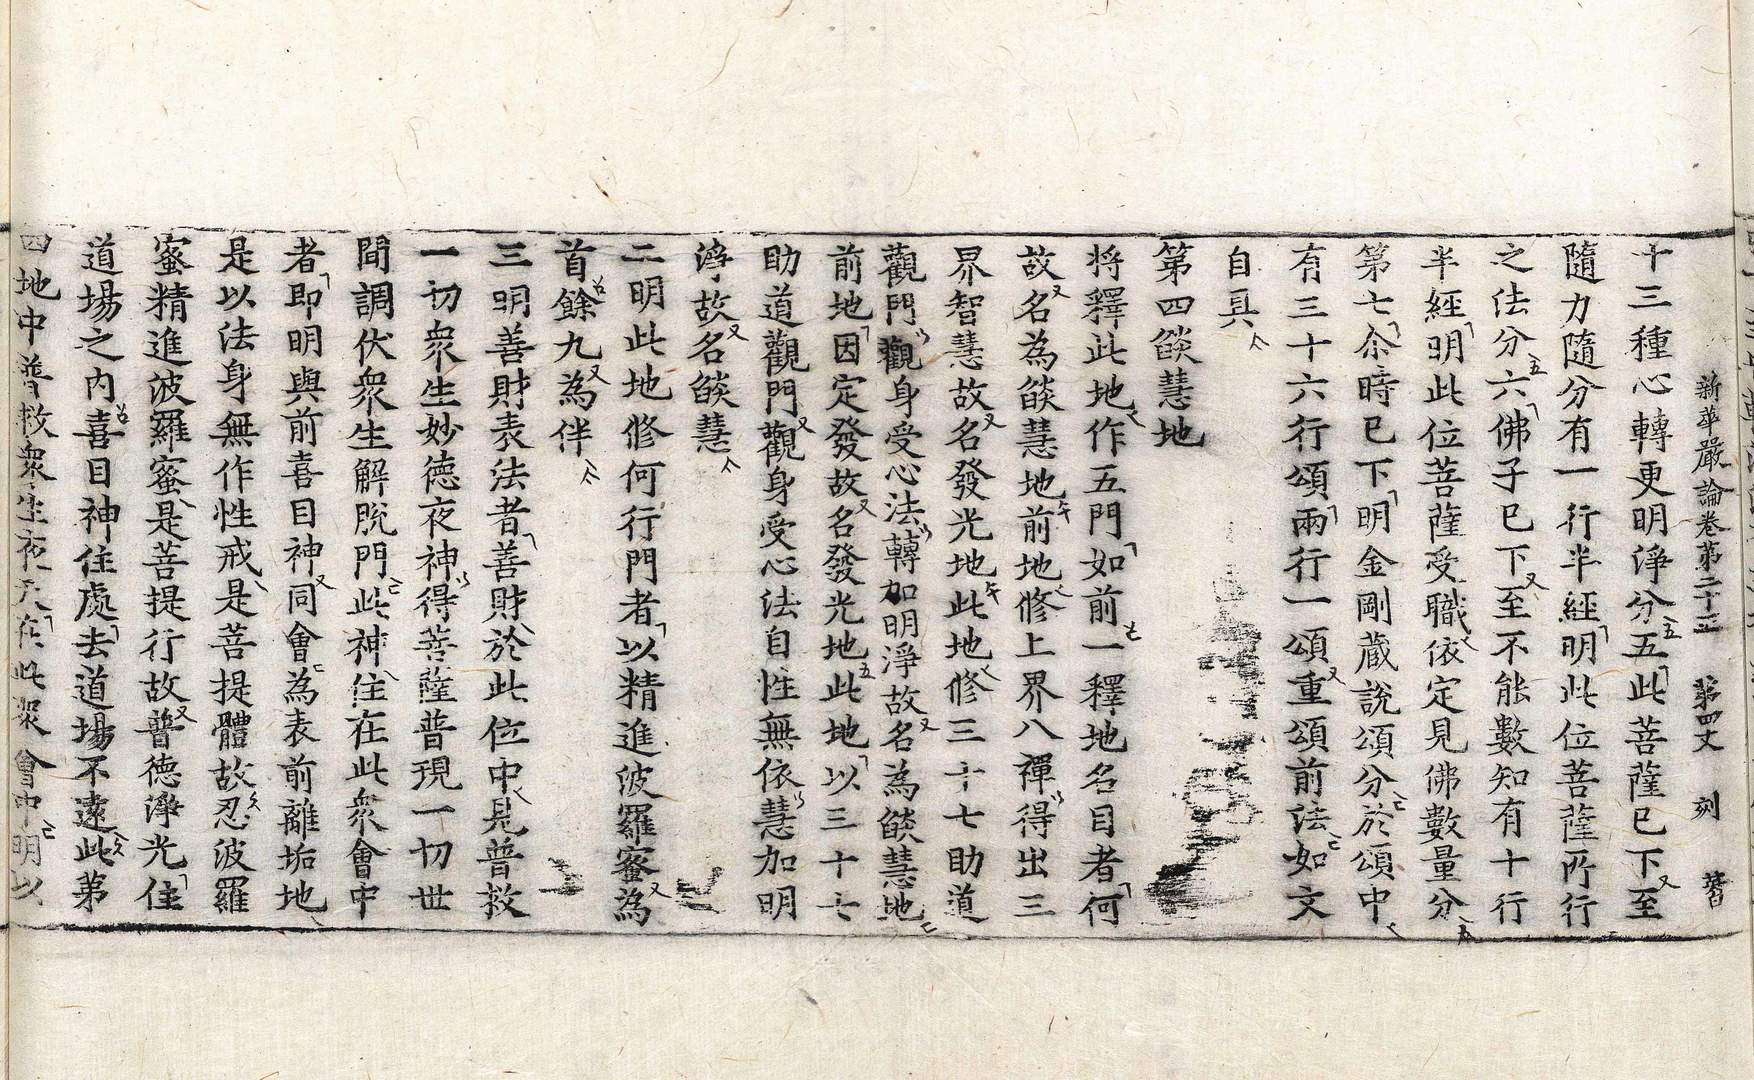 新華嚴論卷第二十五 第四丈 刻
十三種心轉更明淨分五此菩薩已下至
隨力隨分有一行半經明此位菩薩所行
之法分六佛子已下至不能數知有十行
半經明此位菩薩受職依定見佛數量分
第七尒時已下明金剛藏說頌分於頌中
有三十六行頌兩行一頌重頌前法如文
自具
第四燄慧地
將釋此地作五門如前一釋地名目者何
故名為燄慧地前地修上界八禪得出三
界智慧故名發光地此地修三十七助道
觀門觀身受心法轉加明淨故名為燄慧地
前地因定發故名發光地此地以三十七
助道觀門觀身受心法自性無依慧加明
淨故名燄慧
二明此地修何行門者以精進波羅蜜為
首餘九為伴
三明善財表法者善財於此位中見普救
一切衆生妙德夜神得菩薩普現一切世
間調伏衆生解脫門此神住在此衆會中
者即明與前喜目神同會為表前離垢地
是以法身無作性戒是菩提體故忍波羅
蜜精進波羅蜜是菩提行故普德淨光住
道場之內喜目神住處去道場不遠此第
四地中普救衆生夜天在此衆會中明以